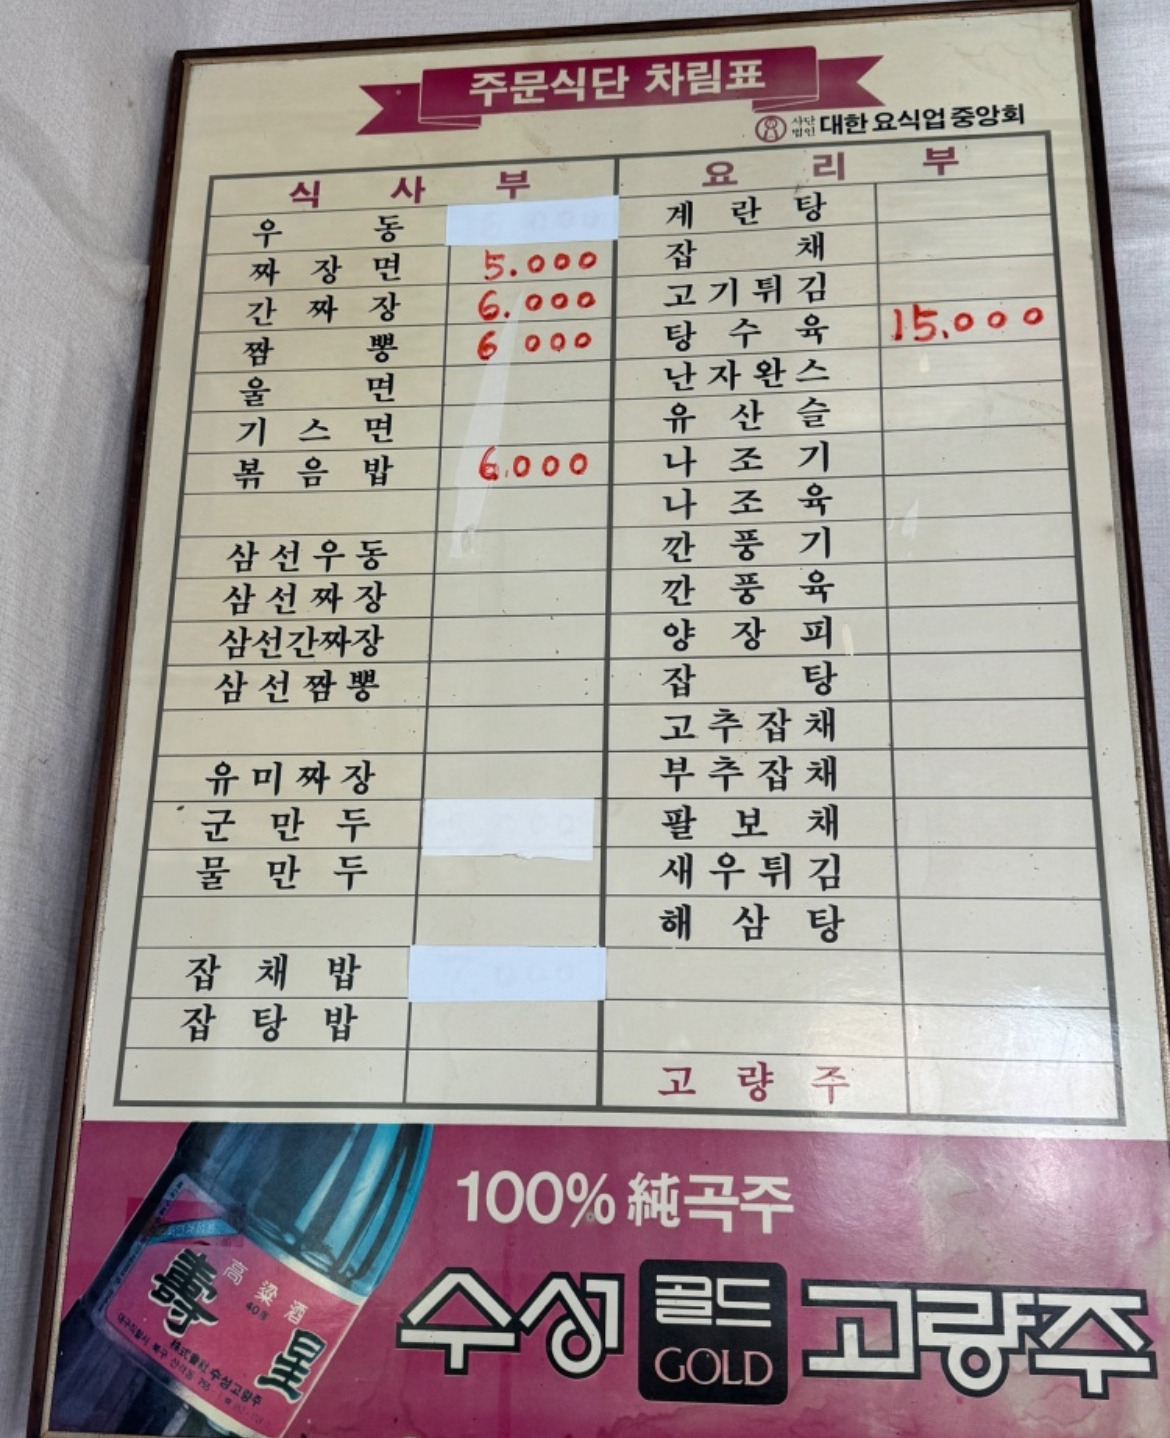 주문식단 차림표
사단법인 대한요식업중앙회
식사부
우동
짜장면 5.000
간짜장 6.000
짬뽕 6 000
울면
기스면
볶음밥 6.000
삼선우동
삼선짜장
삼선간짜장
삼선짬뽕
유미짜장
군만두
물만두
잡채밥 7.000
잡탕밥
요리부
계란탕
잡채
고기튀김
탕수육 15.000
난자완스
유산슬
나조기
나조육
깐풍기
깐풍육
양장피
잡탕
고추잡채
부추잡채
팔보채
새우튀김
해삼탕
고량주
100% 純곡주
수성 골드 GOLD 고량주
高粱酒
40
壽星
株式會社 수성고량주